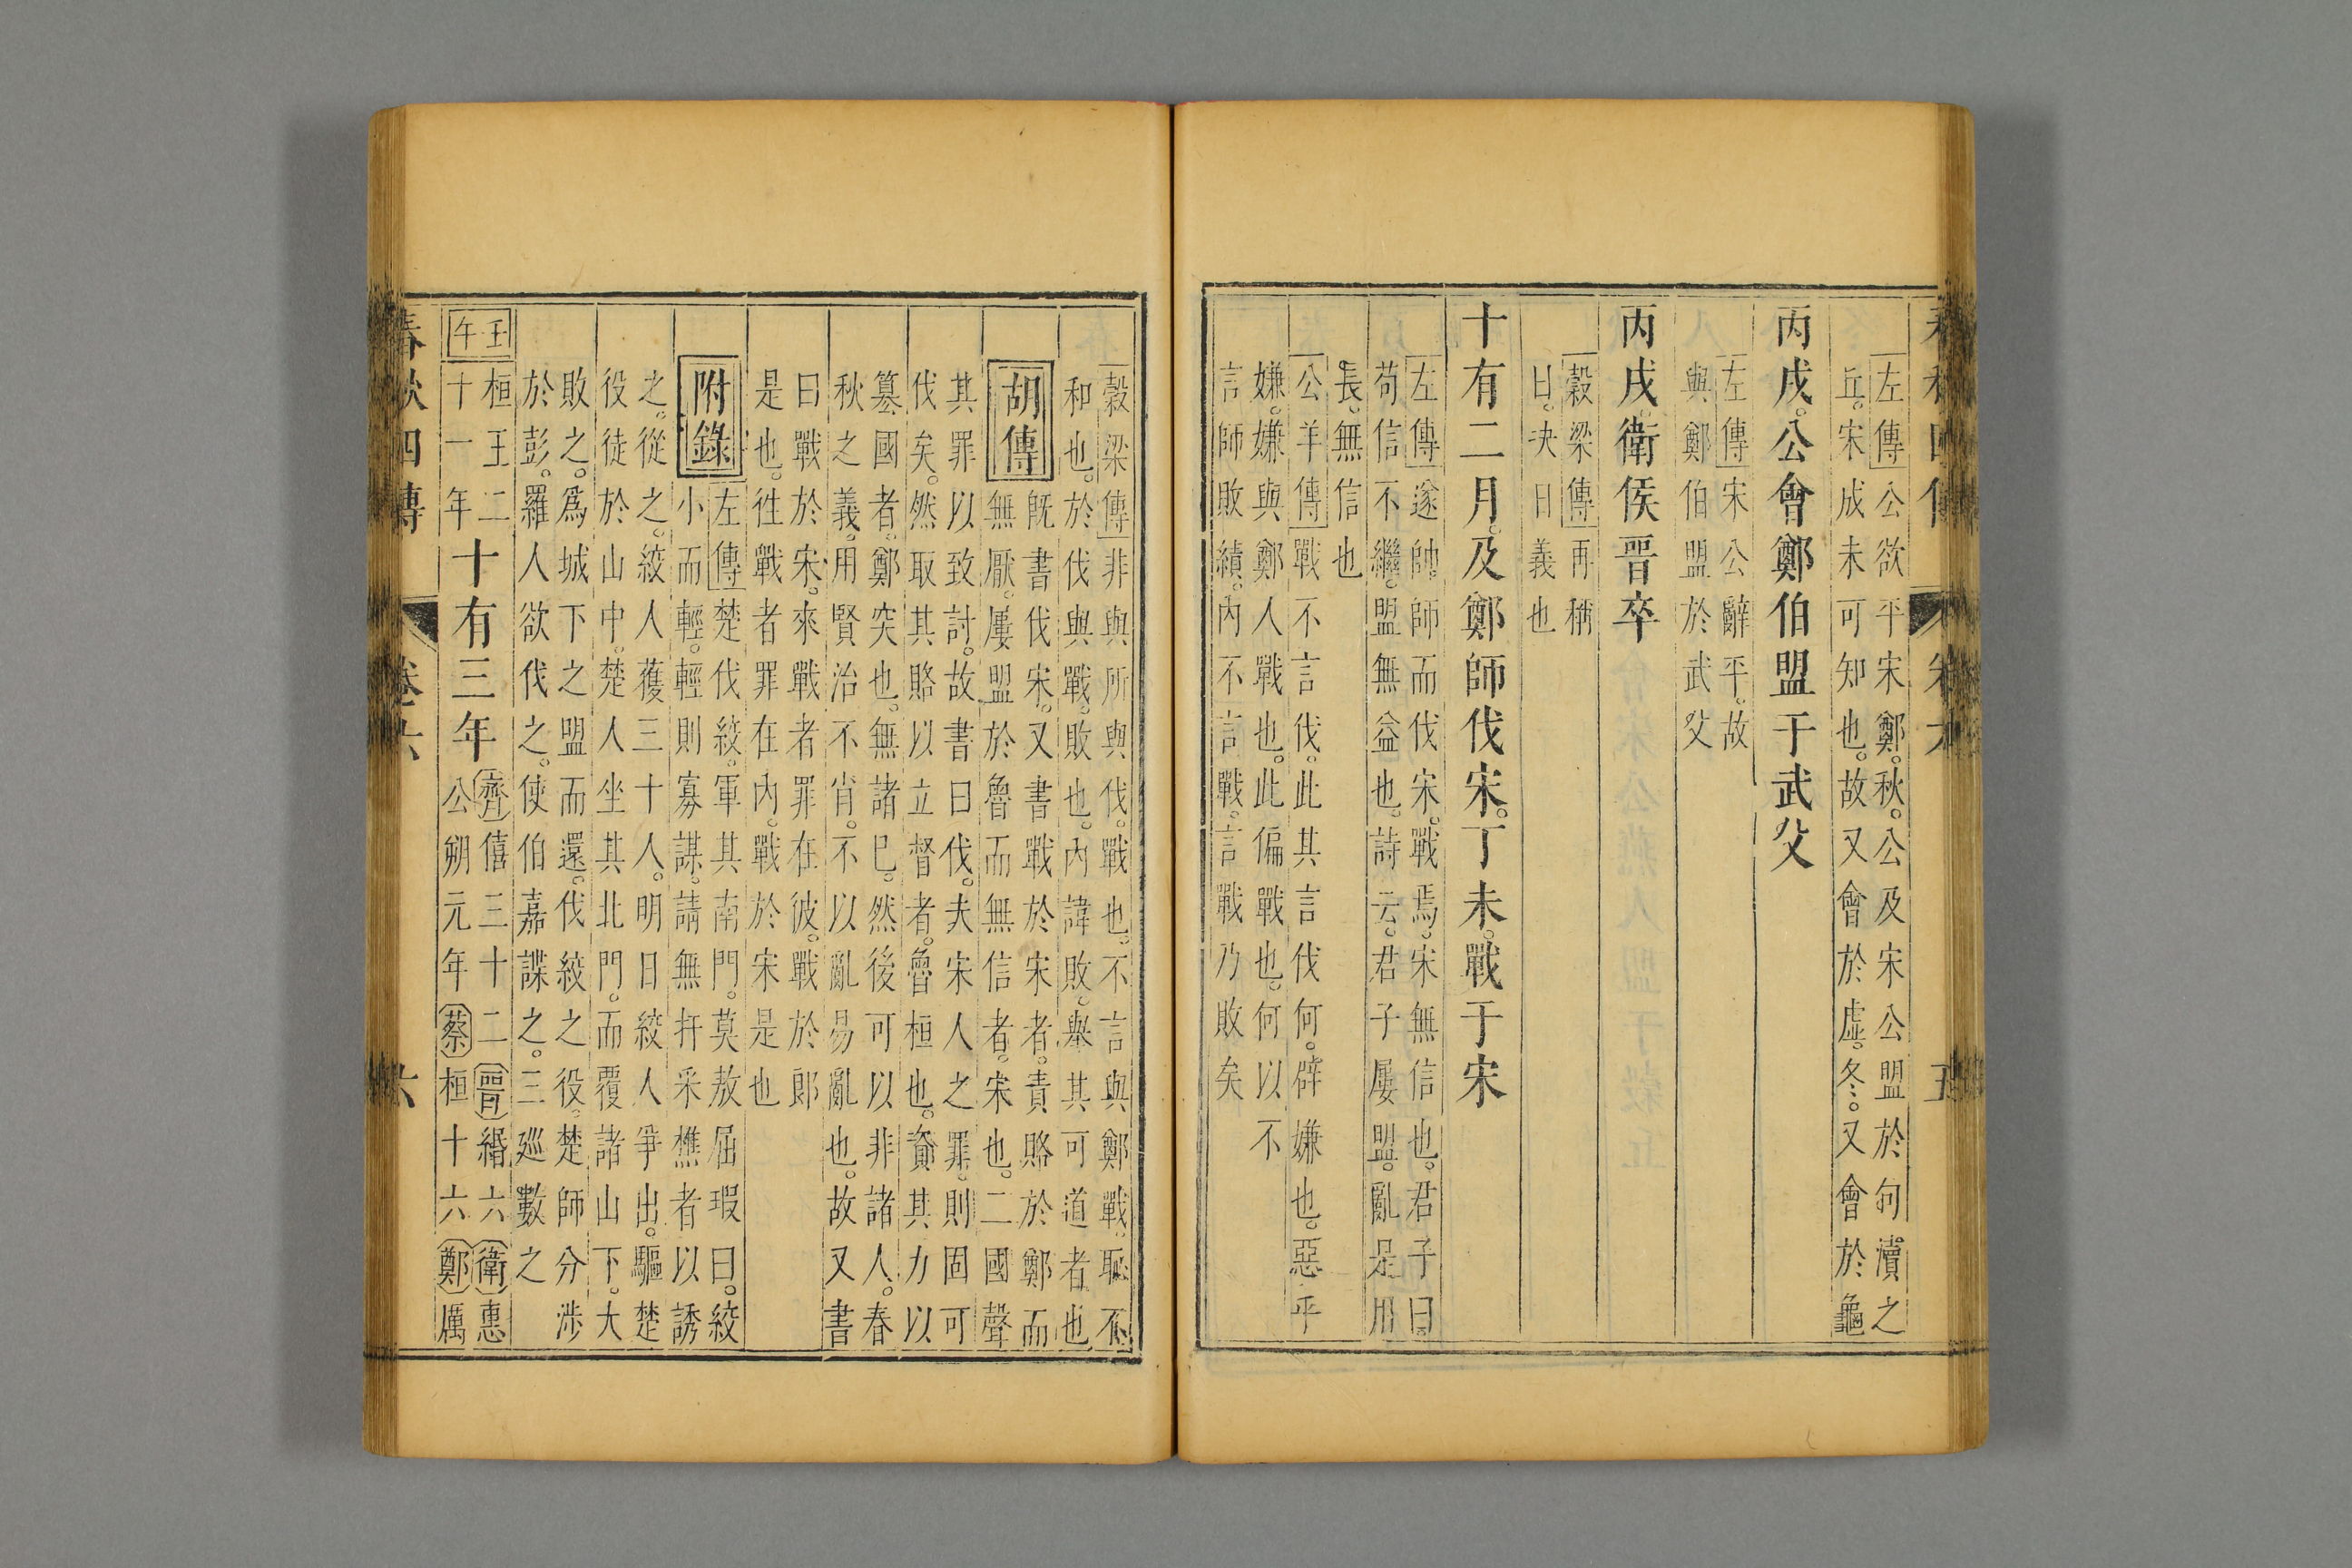 左傳公欲平宋鄭。秋。公及宋公盟於句瀆之
丘。宋成未可知也。故又會於虛。冬。又會於龜
丙戌。公會鄭伯盟于武父
左傳宋公辭平。故
與鄭伯盟於武父
丙戌。衛侯晉卒
穀梁傳再稱
日。決日義也
十有二月。及鄭師伐宋。丁未。戰于宋
左傳遂帥師而伐宋。戰焉。宋無信也。君子曰。
苟信不繼。盟無益也。詩云。君子屢盟。亂是用
長。無信也
公羊傳戰不言伐。此其言伐何。辟嫌也。惡乎
嫌。嫌與鄭人戰也。此偏戰也。何以不
言師敗績。內不言戰。言戰乃敗矣
穀梁傳非與所與伐。戰也。不言與鄭戰。恥不
和也。於伐與戰。敗也。內諱敗。舉其可道者也
胡傳
既書伐宋。又書戰於宋者。責賂於鄭而
無厭。屢盟於魯而無信者。宋也。二國聲
其罪以致討。故書曰伐。夫宋人之罪。則固可
伐矣。然取其賂以立督者。魯桓也。資其力以
篡國者。鄭突也。無諸已。然後可以非諸人。春
秋之義。用賢治不肖。不以亂易亂也。故又書
曰戰於宋。來戰者罪在彼。戰於郎
是也。徃戰者罪在內。戰於宋是也
附錄
左傳楚伐絞。軍其南門。莫敖屈瑕曰。絞
小而輕。輕則寡謀。請無扞采樵者以誘
之。從之。絞人獲三十人。明日絞人爭出。驅楚
役徒於山中。楚人坐其北門。而覆諸山下。大
敗之。爲城下之盟而還。伐絞之役。楚師分涉
於彭。羅人欲伐之。使伯嘉諜之。三巡數之
壬午
桓王二
十一年
十有三年
齊僖三十二晉緡六衛惠
公朔元年蔡桓十六鄭厲
春秋四傳 卷六 六